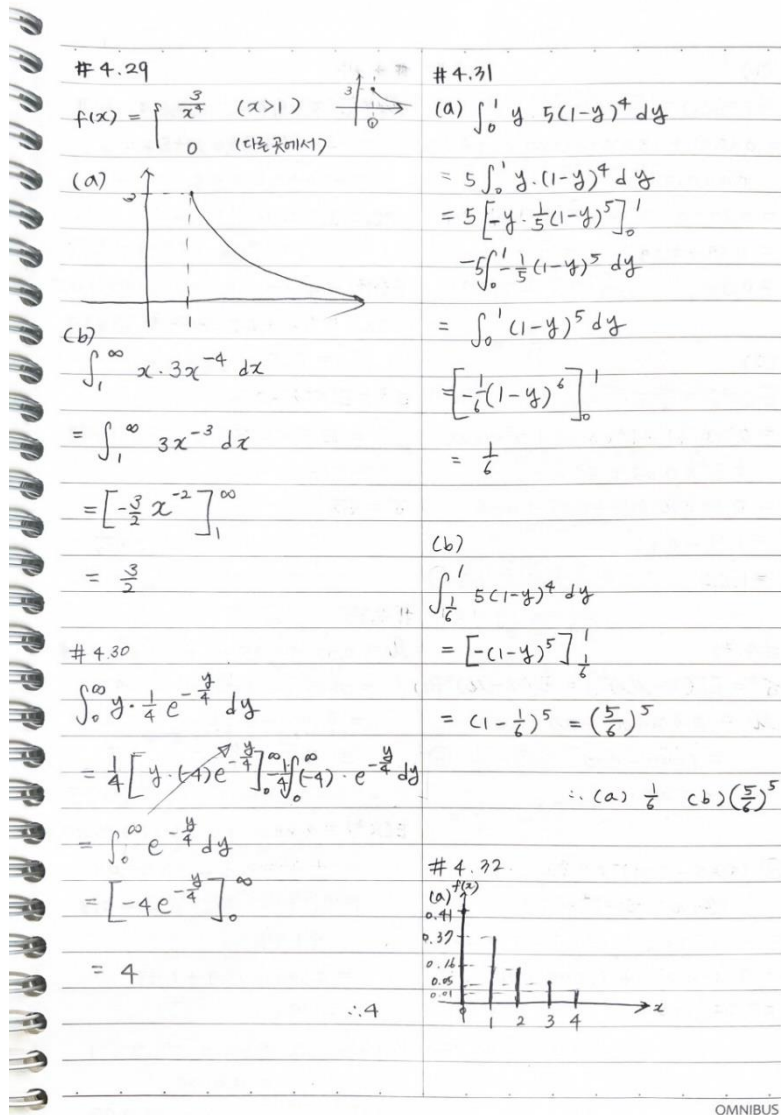 # 4.29
f(x) = { 3/x⁴ (x>1)
0 (다른 곳에서)
3
1
(a)
3
1
(b)
∫₁^∞ x · 3x⁻⁴ dx
= ∫₁^∞ 3x⁻³ dx
= [-3/2 x⁻²]₁^∞
= 3/2
# 4.30
∫₀^∞ y · 1/4 e^(-y/4) dy
= 1/4 [y · (-4)e^(-y/4)]₀^∞ - 1/4 ∫₀^∞ (-4) · e^(-y/4) dy
= ∫₀^∞ e^(-y/4) dy
= [-4e^(-y/4)]₀^∞
= 4
∴ 4
# 4.31
(a) ∫₀¹ y · 5(1-y)⁴ dy
= 5∫₀¹ y · (1-y)⁴ dy
= 5[-y · 1/5(1-y)⁵]₀¹
-5∫₀¹ -1/5(1-y)⁵ dy
= ∫₀¹ (1-y)⁵ dy
= [-1/6(1-y)⁶]₀¹
= 1/6
(b)
∫_(1/6)^1 5(1-y)⁴ dy
= [-(1-y)⁵]_(1/6)^1
= (1 - 1/6)⁵ = (5/6)⁵
∴ (a) 1/6 (b) (5/6)⁵
# 4.32
(a) f(x)
0.41
0.37
0.16
0.05
0.01
0 1 2 3 4 x
OMNIBUS